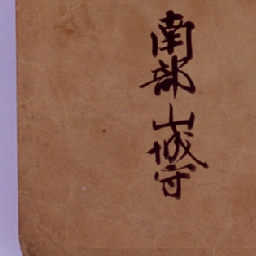 南部山城守